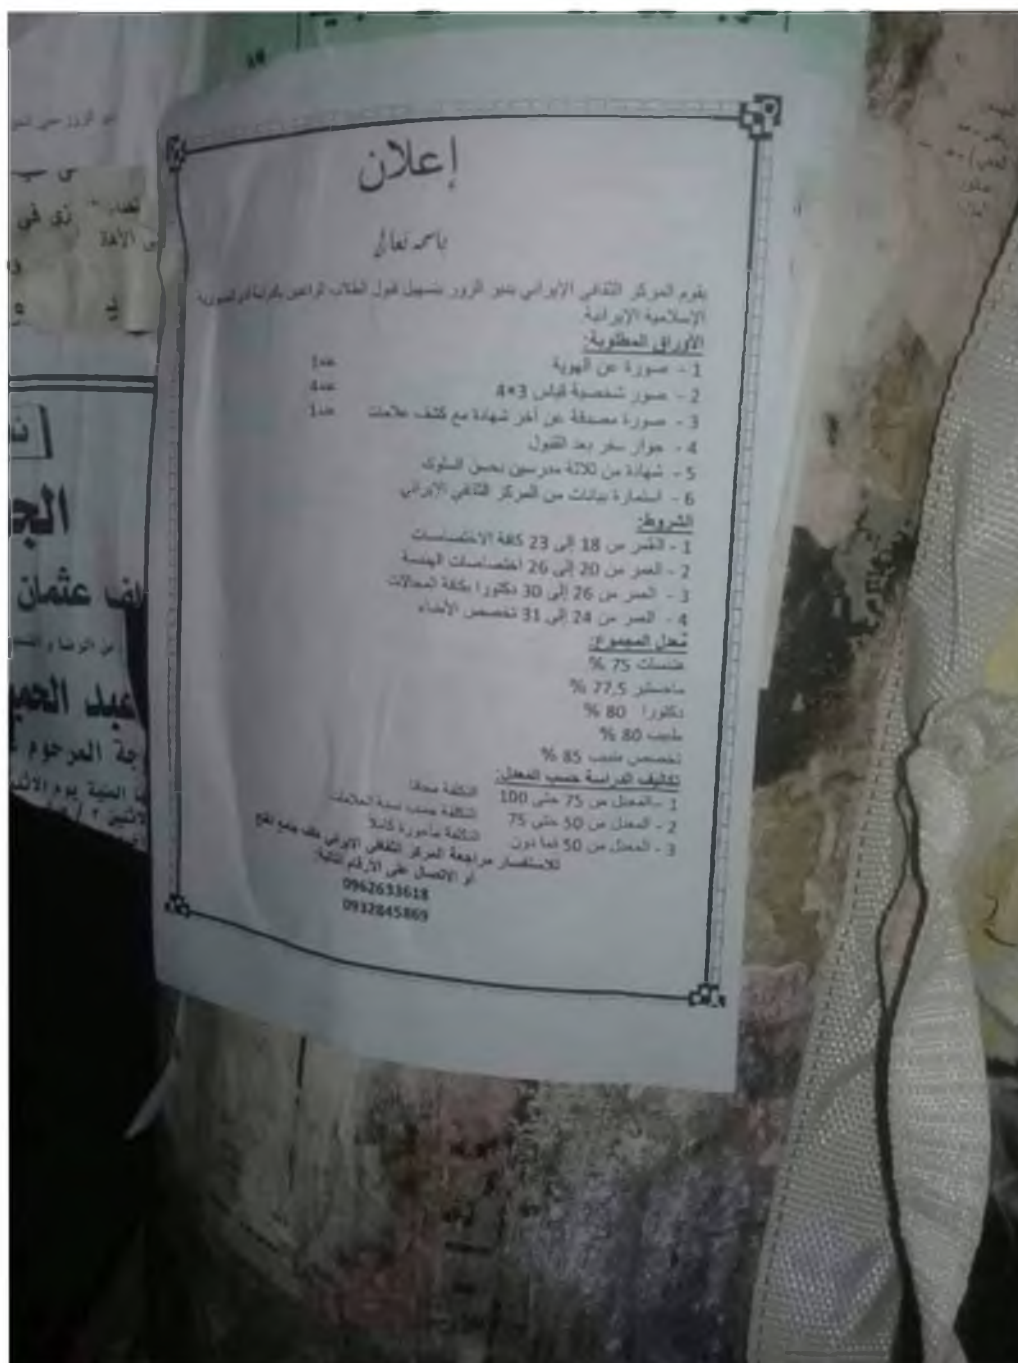 إعلان
باسمه تعالى
يقوم المركز الثقافي الإيراني بدير الزور بتسهيل قبول الطلاب الراغبين بالدراسة في الجمهورية
الإسلامية الإيرانية
الأوراق المطلوبة:
1 - صورة عن الهوية عدد1
2 - صور شخصية قياس 3*4 عدد4
3 - صورة مصدقة عن أخر شهادة مع كشف علامات عدد1
4 - جواز سفر بعد القبول
5 - شهادة من ثلاثة مدرسين بحسن السلوك
6 - استمارة بيانات من المركز الثقافي الإيراني
الشروط:
1 - العمر من 18 إلى 23 كافة الاختصاصات
2 - العمر من 20 إلى 26 اختصاصات الهندسة
3 - العمر من 26 إلى 30 دكتورا بكافة المجالات
4 - العمر من 24 إلى 31 تخصص الأطباء
مُعدل المجموع:
هندسات 75 %
ماجستير 77,5 %
دكتورا 80 %
طبيب 80 %
تخصص طبيب 85 %
تكاليف الدراسة حسب المعدل:
1 - المعدل من 75 حتى 100 التكلفة مجانا
2 - المعدل من 50 حتى 75 التكلفة حسب نسبة العلامات
3 - المعدل من 50 فما دون التكلفة مأجورة كاملا
للاستفسار مراجعة المركز الثقافي الإيراني خلف جامع
أو الاتصال على الأرقام التالية:
0962633618
0932845869
زي في
الج
عثمان
عبد
المرحوم
المنية يوم